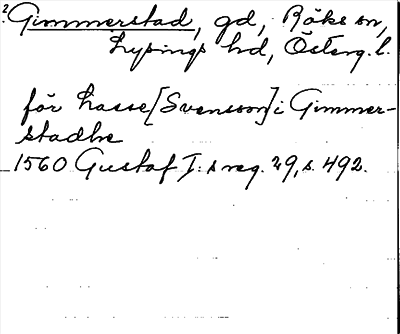 2 Gimmerstad, gd, Röks sn,
Lysings hd, Österg. l.
för Lasse [Svensson] i Gimmer-
stadhe
1560 Gustaf I:s reg. 29, s. 492.